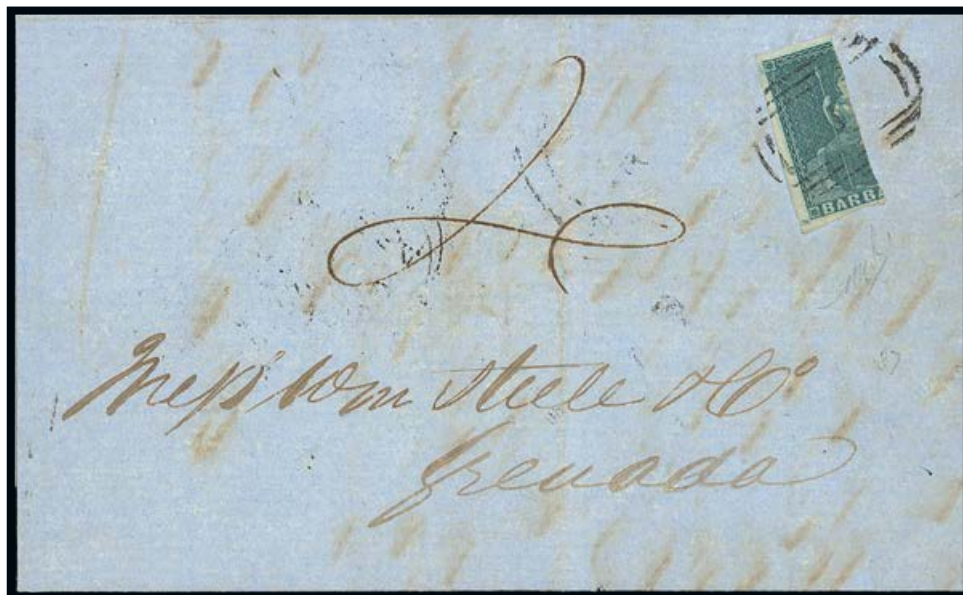 BARB
Mess^rs Wm Steele & Co
Grenada